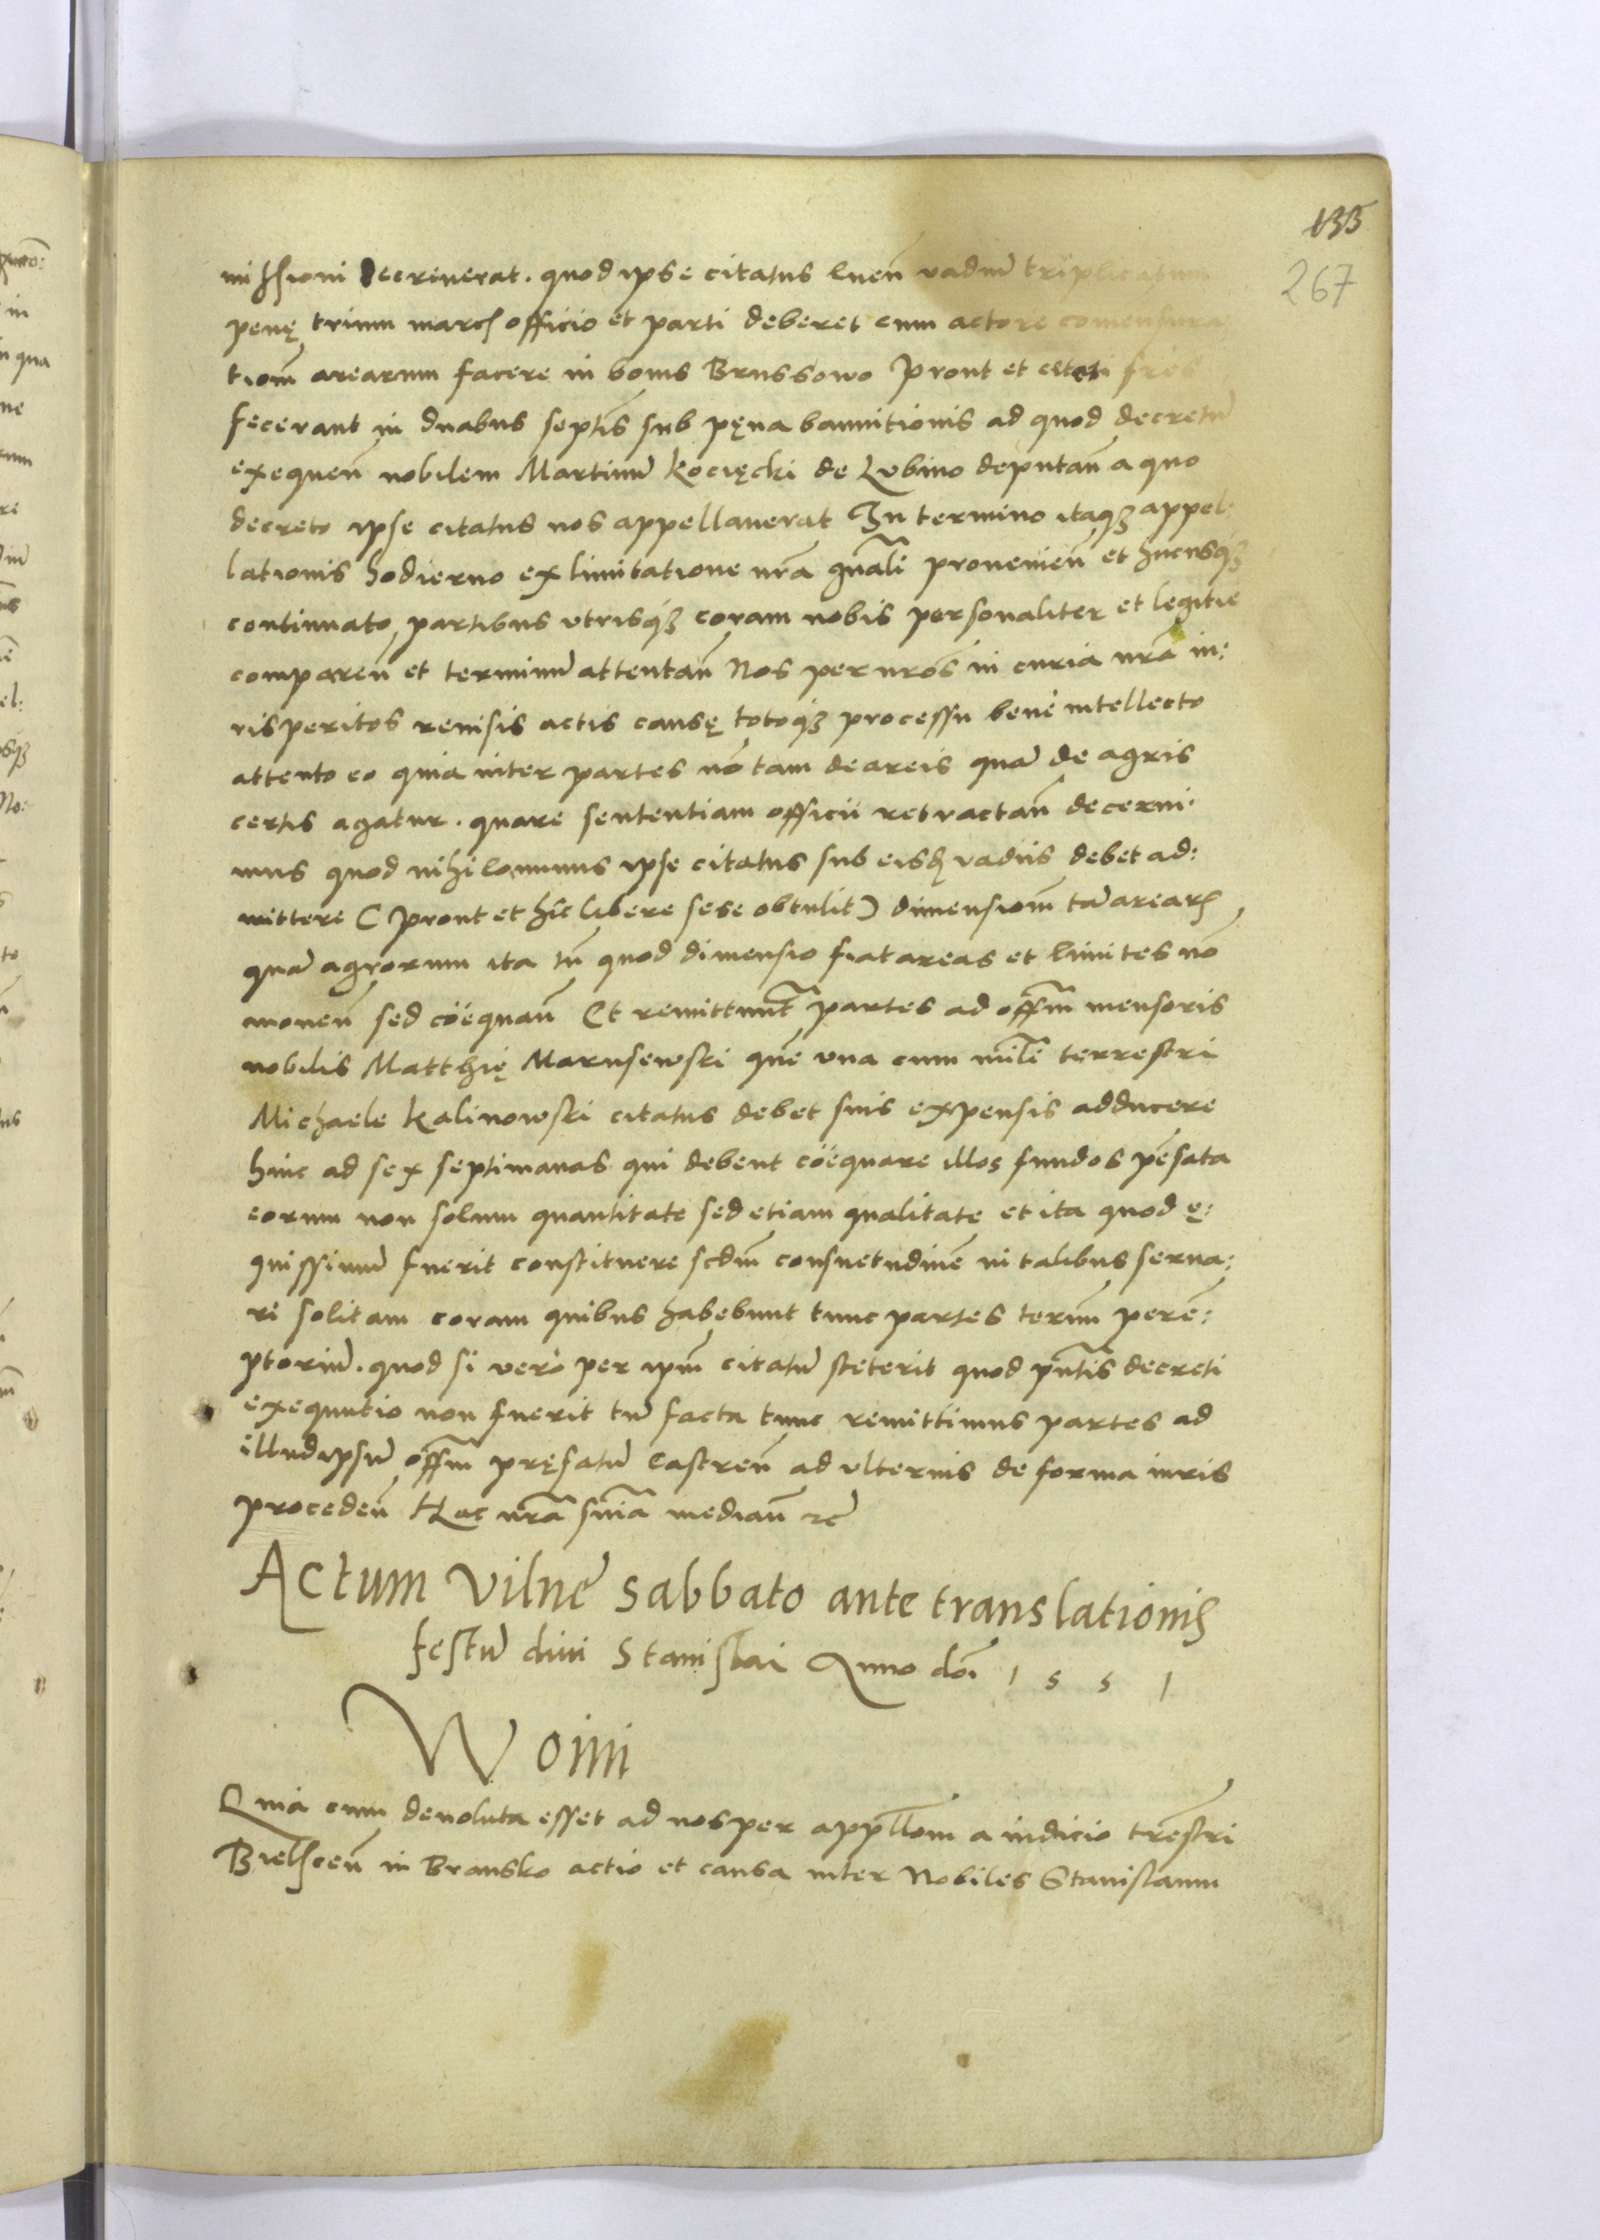 133
267
missioni decreuerat. quod ipse citatus luen̄ vadiū triplicatum
penę trium march officio et parti deberet cum actore comensura
tiom̄ arearum facere in bonis Brussowo Prout et cetęri frēs
fecerant in duabus septīs sub pęna bannitionis ad quod decretū
exequen̄ nobilem Martinū kocięcki de Lubino deputan̄ a quo
decreto ipse citatus nos appellauerat In termino itaqȝ appel:
lationis hodierno ex limitatione nr̄a gn̄ali proueniēn et hucusqȝ
continuato partibus vtrisqȝ coram nobis personaliter et legitie
comparen̄ et terminū attentan̄ Nos per nr̄os in curia nr̄a iu:
risperitos reuisis actis causę totoqȝ processu bene intellecto
attento eo quia inter partes nō tam de areis quā de agris
certis agatur. quare sententiam officii retractan̄ decerni:
mus quod nihilominus ipse citatus sub eisd̄ vadiis debet ad:
mittere (Prout et hīc libere sese obtulit) dimensiom̄ tā arearȝ
quā agrorum ita tn̄ quod dimensio fiat areas et limites nō
mouen̄ sed cöequan̄ Et remittunt̄ partes ad off̄m mensoris
nobilis Matthię Marusewski quē vna cum mīlē terrestri
Michaele kalinowski citatus debet suis expensis adducere
hinc ad sex septimanas qui debent cöequare illos fundos pēsata
eorum non solum quantitate sed etiam qualitate et ita quod ę:
quissimū fuerit constituere scdm̄ consuetudinē in talibus serua:
ri solitam coram quibus habebunt tunc partes term̄ perē:
ptoriū. quod si vero per ipm̄ citatū steterit quod pn̄tis decreti
exequutio non fuerit tū facta tunc remittimus partes ad
illud ipsū off̄m pręfatū Castren̄ ad vlterius de forma iuris
proceden̄ Hac nr̄a sn̄ia median̄ &c
Actum Vilne sabbato ante translationis
festū diui Stanislai Anno dn̄i 1551
Woini
Quia cum deuoluta esset ad nos per appllom̄ a iudicio trēstri
Bielscen̄ in Bransko actio et causa inter Nobiles Stanislaum